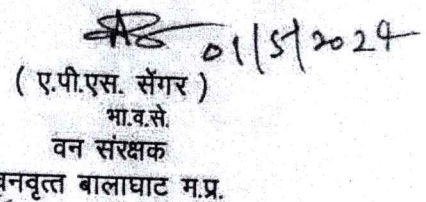 01/5/2024
( ए.पी.एस. सेंगर )
भा.व.से.
वन संरक्षक
वनवृत्त बालाघाट म.प्र.